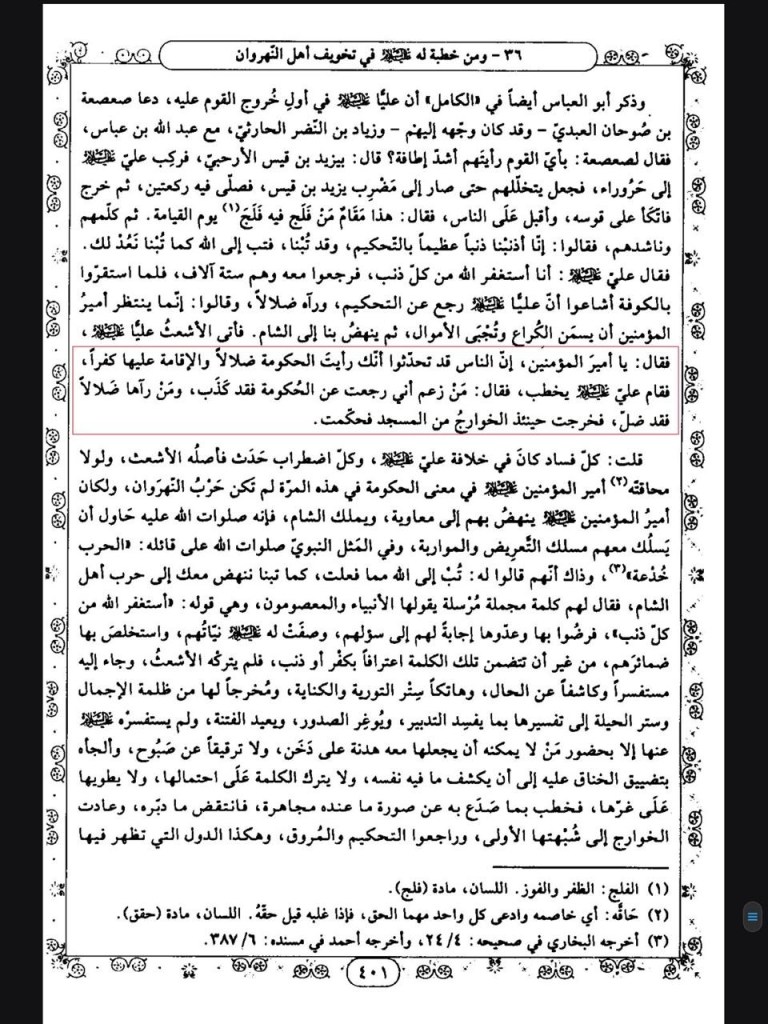 ٣٦ - ومن خطبة له عليه السلام في تخويف أهل النّهروان
وذكر أبو العباس أيضاً في «الكامل» أن عليًّا عليه السلام في أولِ خُروج القوم عليه، دعا صعصعة
بن صُوحان العبديّ – وقد كان وجّهه إليهم – وزياد بن النّضر الحارثيّ، مع عبد الله بن عباس،
فقال لصعصعة: بأيّ القوم رأيتَهم أشدّ إطافة؟ قال: بيزيد بن قيس الأرحبيّ، فركِب عليّ عليه السلام
إلى حَرُوراء، فجعل يتخلّلهم حتى صار إلى مَضْرِب يزيد بن قيس، فصلّى فيه ركعتين، ثم خرج
فاتّكأ على قوسه، وأقبل عَلَى الناس، فقال: هذا مَقَامٌ مَنْ فَلَج فيه فَلَجَ(١) يوم القيامة. ثم كلّمهم
وناشدهم، فقالوا: إنّا أذنبْنا ذنباً عظيماً بالتّحكيم، وقد تُبْنا، فتب إلى الله كما تُبْنا نَعُدْ لك.
فقال عليّ عليه السلام: أنا أستغفر الله من كلّ ذنب، فرجعوا معه وهم ستة آلاف، فلما استقرّوا
بالكوفة أشاعوا أنّ عليًّا عليه السلام رجع عن التحكيم، ورآه ضلالاً، وقالوا: إنّما ينتظر أميرُ
المؤمنين أن يسمَن الكُراع وتُجْبَى الأموال، ثم ينهضُ بنا إلى الشام. فأتى الأشعثُ عليًّا عليه السلام،
فقال: يا أميرَ المؤمنين، إنّ الناس قد تحدّثوا أنّك رأيتَ الحكومة ضلالاً والإقامة عليها كفراً،
فقام عليّ عليه السلام يخطب، فقال: مَنْ زعم أني رجعت عن الحُكومة فقد كَذَب، ومَنْ رآها ضَلالاً
فقد ضلّ، فخرجت حينئذ الخوارجُ من المسجد فحكّمت.
قلت: كلّ فساد كانَ في خلافة عليّ عليه السلام، وكلّ اضطراب حَدَث فأصلُه الأشعث، ولولا
محاقّته(٢) أمير المؤمنين عليه السلام في معنى الحكومة في هذه المرّة لم تَكن حَرْبُ النّهرَوان، ولكان
أميرُ المؤمنين عليه السلام ينهضُ بهم إلى معاوية، ويملك الشام، فإنه صلوات الله عليه حَاول أن
يَسلُك معهم مسلك التَّعرِيض والمواربة، وفي المَثل النبويّ صلوات الله على قائله: «الحرب
خُدْعة»(٣)، وذاك أنّهم قالوا له: تُبْ إلى الله مما فعلت، كما تبنا ننهض معك إلى حرب أهل
الشام، فقال لهم كلمة مجملة مُرْسلة يقولها الأنبياء والمعصومون، وهي قوله: «أستغفر الله من
كلّ ذنب»، فرضُوا بها وعدّوها إجابةً لهم إلى سؤلهم، وصفَتْ له عليه السلام نيّاتُهم، واستخلصَ بها
ضمائرَهم، من غير أن تتضمن تلك الكلمة اعترافاً بكفْر أو ذنب، فلم يتركْه الأشعثُ، وجاء إليه
مستفسراً وكاشفاً عن الحال، وهاتكاً سِتْر التورية والكناية، ومُخرجاً لها من ظلمة الإجمال
وستر الحيلة إلى تفسيرها بما يفسِد التدبير، ويُوغِر الصدور، ويعيد الفتنة، ولم يستفسرْه عليه السلام
عنها إلا بحضور مَنْ لا يمكنه أن يجعلها معه هدنة على دَخَن، ولا ترقيقاً عن صَبُوح، وألجأه
بتضييق الخناق عليه إلى أن يكشف ما فيه نفسه، ولا يترك الكلمة عَلَى احتمالها، ولا يطويها
عَلَى غرّها، فخطب بما صَدَع به عن صورة ما عنده مجاهرة، فانتقض ما دبّره، وعادت
الخوارج إلى شُبْهتها الأولى، وراجعوا التحكيم والمُروق، وهكذا الدول التي تظهر فيها
(١) الفلج: الظفر والفوز. اللسان، مادة (فلج).
(٢) حَاقَّه: أي خاصمه وادعى كل واحد مهما الحق، فإذا غلبه قيل حقّهُ. اللسان، مادة (حقق).
(٣) أخرجه البخاري في صحيحه: ٢٤/٤، وأخرجه أحمد في مسنده: ٣٨٧/٦.
٤٠١